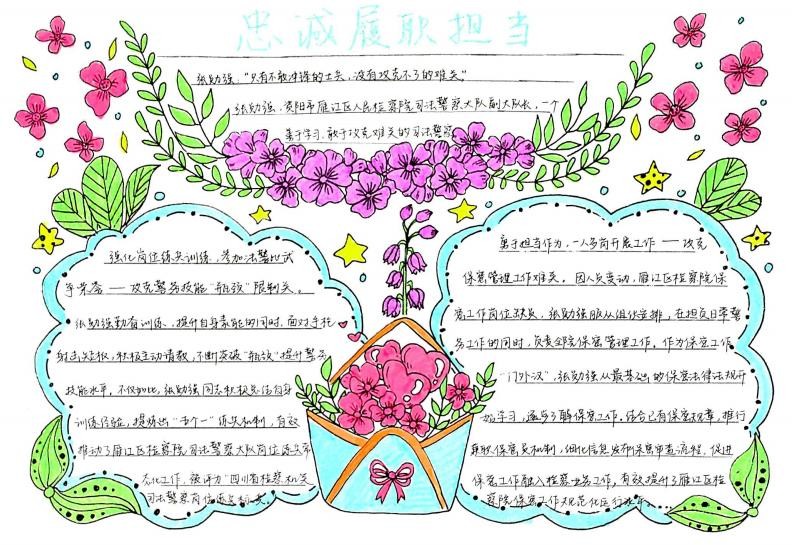 忠诚履职担当
张勋强："只有不敢冲锋的士兵，没有攻克不了的难关"
张勋强，资阳市雁江区人民检察院司法警察大队副大队长，一个
善于学习、敢于攻克难关的司法警察
强化岗位练兵训练，参加法警比试
争荣誉——攻克警务技能"瓶颈"限制关。
张勋强勤奋训练，提升自身素能的同时，面对手枪
射击短板，积极主动请教，不断突破"瓶颈"提升警务
技能水平，不仅如此，张勋强同志积极总结自身
训练经验，提炼出"五个一"练兵机制，有效
推动了雁江区检察院司法警察大队岗位练兵常
态化工作，获评为"四川省检察机关
司法警察岗位练兵标兵。
勇于担当作为，一人多岗开展工作——攻克
保密管理工作难关。因人员变动，雁江区检察院保
密工作岗位缺员，张勋强服从组织安排，在担负日常警
务工作的同时，负责全院保密管理工作。作为保密工作
"门外汉"，张勋强从最基础的保密法律法规开
始学习，逐步了解保密工作，结合已有保密规章，推行
兼职保密员机制，细化信息发布保密审查流程，促进
保密工作融入检察业务工作，有效提升了雁江区检
察院保密工作规范化运行水平。